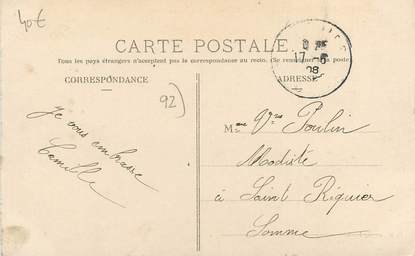 40€
CARTE POSTALE
Tous les pays étrangers n'acceptent pas la correspondance au recto. (Se renseigner à la poste
CORRESPONDANCE
ADRESSE
17-6
08
92)
Je vous embrasse
Camille
Mme Vve Poulin
Modiste
à Saint Riquier
Somme